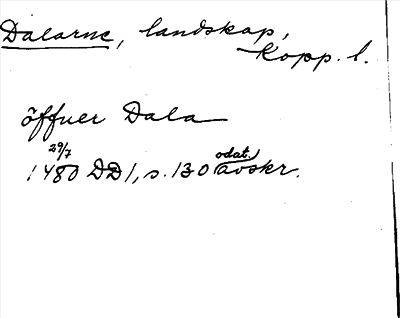 Dalarne, landskap,
Kopp. l.
öffuer Dala
29/7
1480 DD 1, s. 130 odat. avskr.